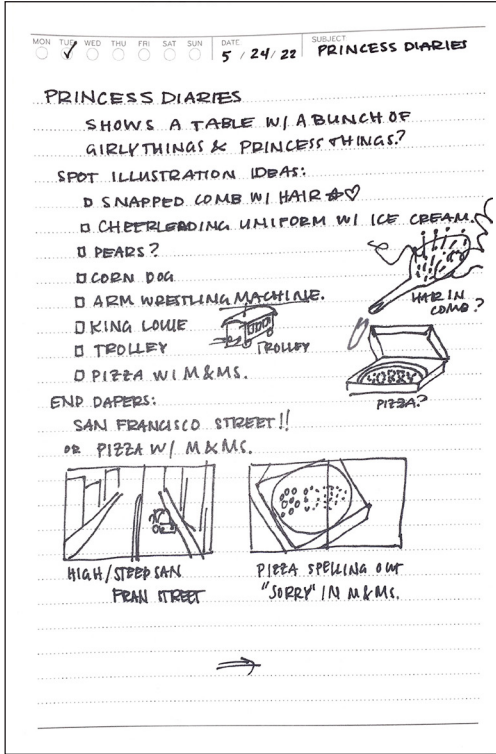 MON TUE WED THU FRI SAT SUN DATE SUBJECT
5 / 24 / 22 PRINCESS DIARIES
PRINCESS DIARIES
SHOWS A TABLE W/ A BUNCH OF
GIRLY THINGS & PRINCESS THINGS?
SPOT ILLUSTRATION IDEAS:
SNAPPED COMB W/ HAIR
CHEERLEADING UNIFORM W/ ICE CREAM.
PEARS?
CORN DOG
ARM WRESTLING MACHINE.
HAIR IN
COMB?
KING LOUIE
TROLLEY
TROLLEY
SORRY
PIZZA W/ M&MS.
PIZZA?
END PAPERS:
SAN FRANCISCO STREET!!
OR PIZZA W/ M&MS.
HIGH/STEEP SAN
FRAN STREET
PIZZA SPELLING OUT
"SORRY" IN M&MS.